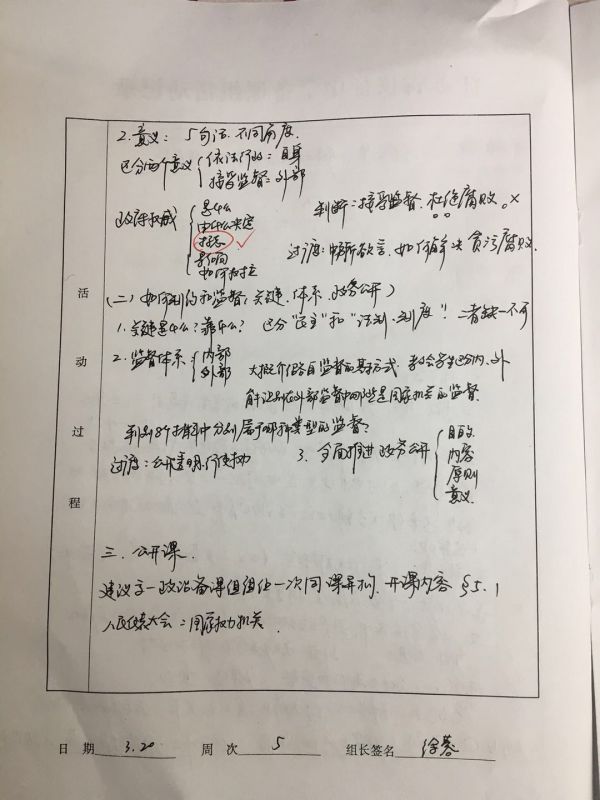 2. 意义: 5句话. 不同角度.
区分两个意义 依法行政: 自身
接受监督: 外部
政府权威
是什么
由什么决定
标志
影响
如何树立
判断: 接受监督, 杜绝腐败。×
过渡: 畅所欲言, 如何解决贪污腐败.
(二) 如何制约和监督: 关键. 体系. 政务公开)
1. 关键是什么? 靠什么? 区分"民主"和"法制·制度"! 二者缺一不可
2. 监督体系 内部
外部
大概介绍各自监督的基本方式. 教会学生区分内、外
能识别在外部监督中哪些是国家机关的监督.
判别8个捕捉中分别属于哪种类型的监督?
过渡: 公开透明行使权力
3. 全面推进政务公开
目的.
内容
原则
意义.
活动过程
三. 公开课.
建议高一政治备课组组织一次同课异构. 开课内容 §5.1
人民代表大会: 国家权力机关.
日 期 3.20 周 次 5 组长签名 徐蓉